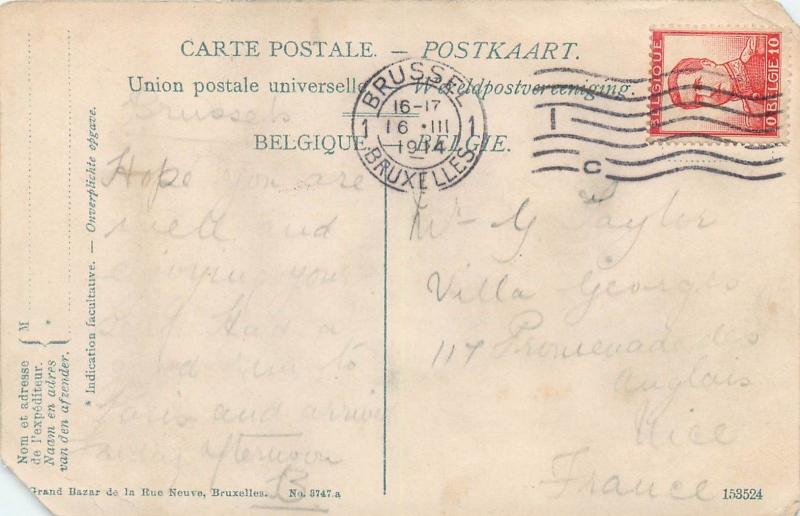 CARTE POSTALE. — POSTKAART.
Union postale universelle Wereldpostvereeniging.
BELGIQUE. BELGIË.
BRUSSEL
16-17
1 16 •III 1
1914
BRUXELLES
1
C
BELGIQUE 10
10 BELGIË 10
Brussels
Hope you are
well and
enjoying your
self Had a
good run to
Paris and arrive
friday afternoon
B
Mr G Taylor
Villa Georges
117 Promenade des
Anglais
Nice
France
M
Nom et adresse
de l'expéditeur.
Naam en adres
van den afzender.
* Indication facultative. — Onverplichte opgave.
Grand Bazar de la Rue Neuve, Bruxelles. No. 3747.a
153524